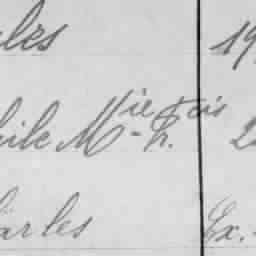 les 19
hile M^ie-Fr^cis 2
arles Ex.-